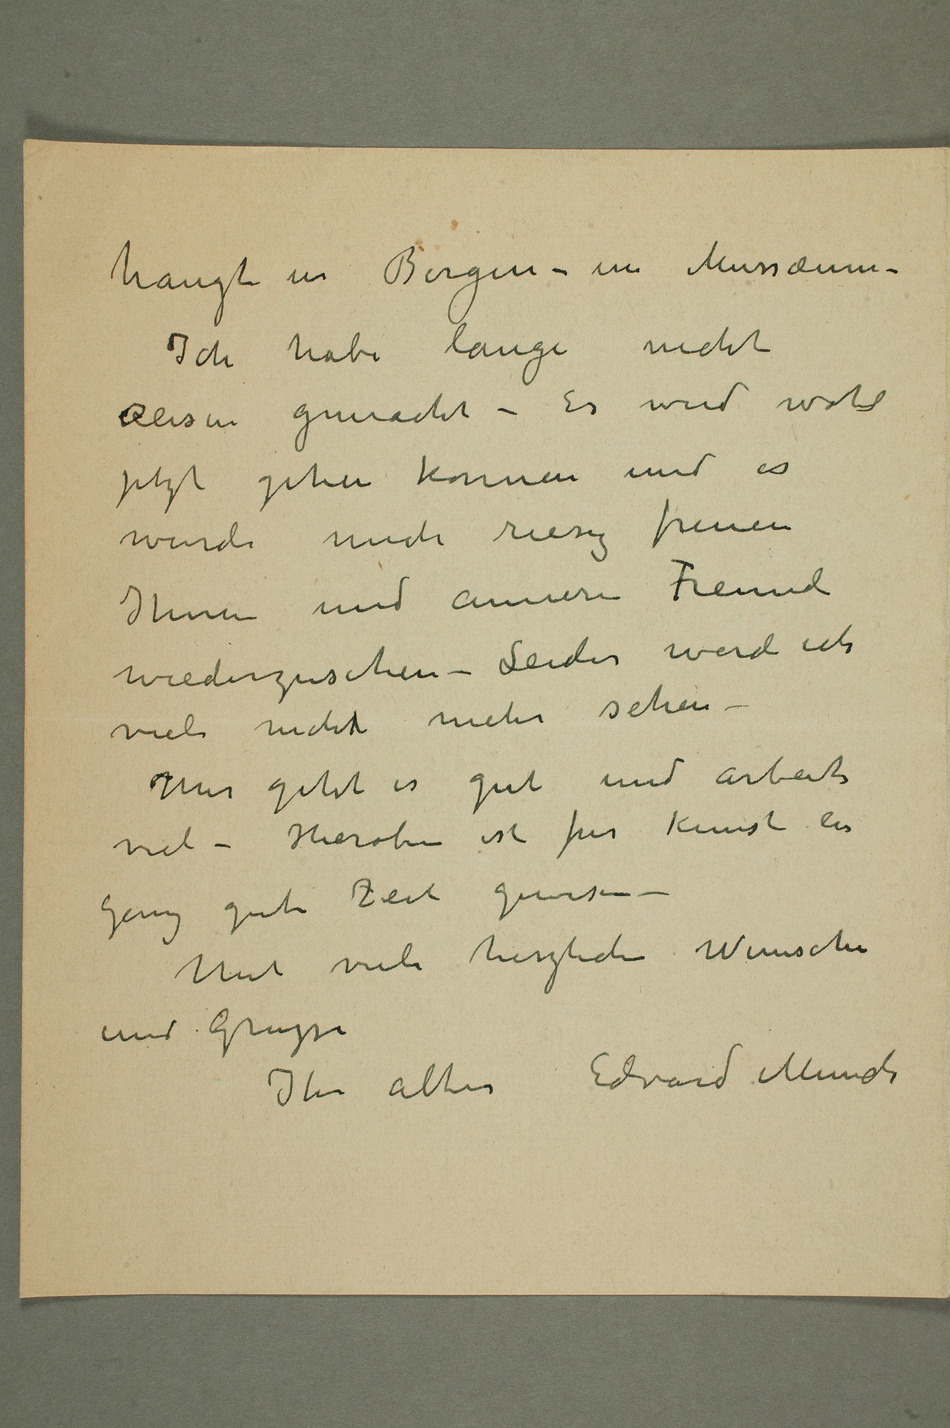 hangt in Bergen – im Mussæum –
Ich habe lange nicht
Reisen gemacht – Es wird wohl
jetzt gehen konnen und es
wurde mich riesig freuen
Ihnen und annere Freunde
wiederzusehen – Leider werd ich
viele nicht mehr sehen –
Mir geht es gut und arbeite
viel – Hieroben ist fur Kunst ein
ganz gute Zeit gewesen –
Mit viele herzliche Wunsche
und Grusse
Ihr alter Edvard Munch